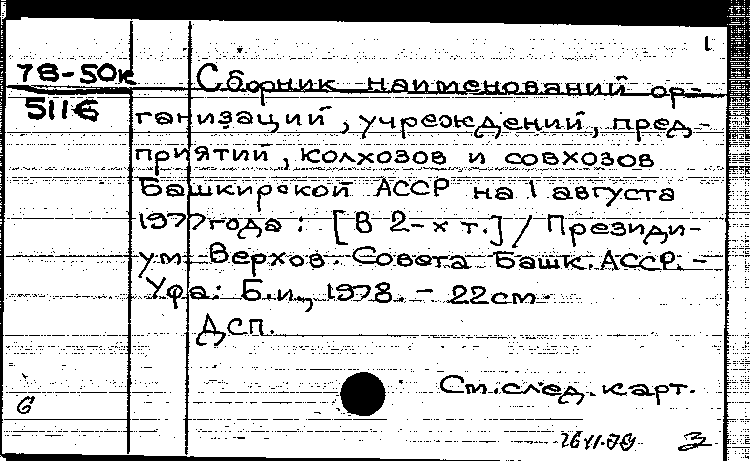 1
78-50к
5116
Сборник наименований ор-
ганизаций, учреждений, пред-
приятий, колхозов и совхозов
Башкирской АССР на 1 августа
1977 года : [В 2-х т.] / Президи-
ум Верхов. Совета Башк. АССР. -
Уфа: Б.и., 1978. - 22см.
ДСП.
См. след. карт.
6
3